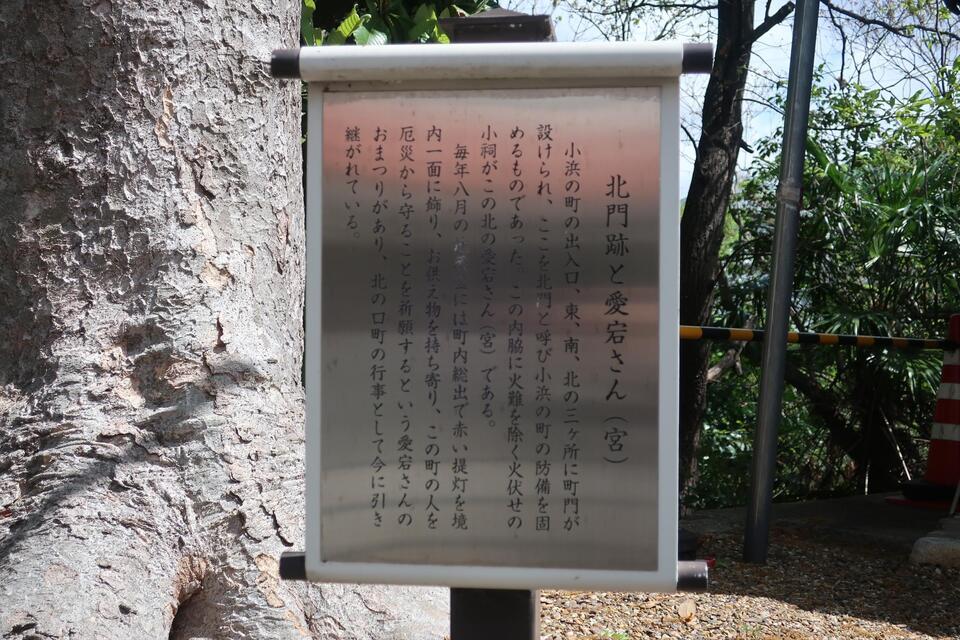 北門跡と愛宕さん(宮)
小浜の町の出入口、東、南、北の三ヶ所に町門が
設けられ、ここを北門と呼び小浜の町の防備を固
めるものであった。この内脇に火難を除く火伏せの
小祠がこの北の愛宕さん(宮)である。
毎年八月の には町内総出で赤い提灯を境
内一面に飾り、お供え物を持ち寄り、この町の人を
厄災から守ることを祈願するという愛宕さんの
おまつりがあり、北の口町の行事として今に引き
継がれている。